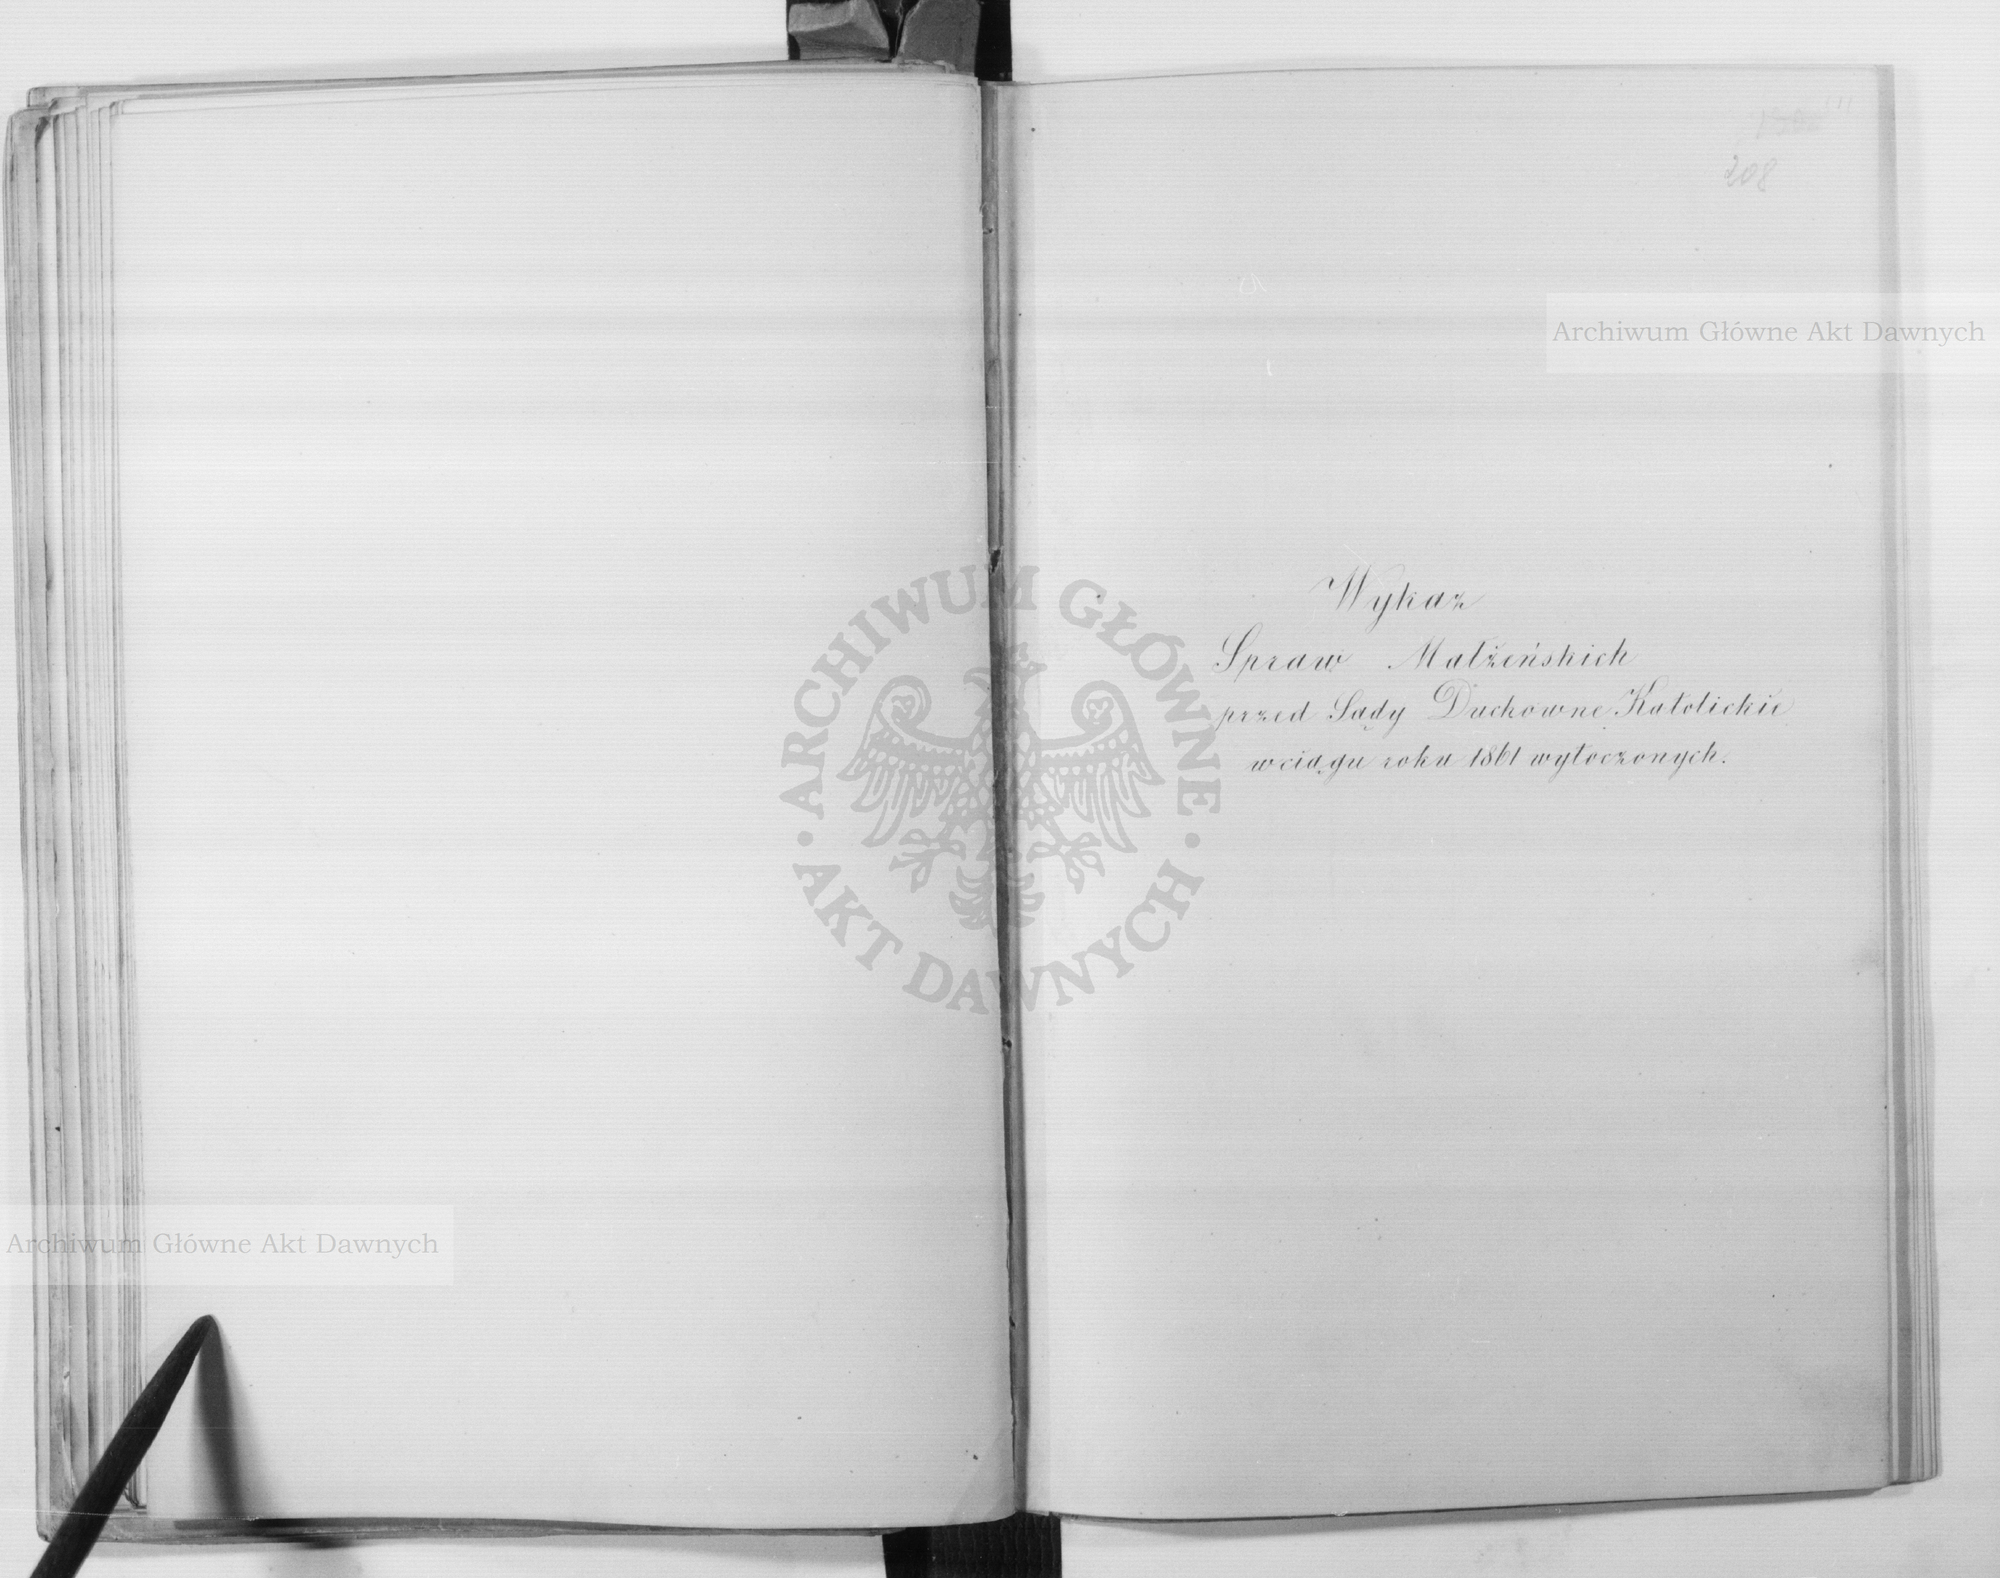 208
Wykaz
Spraw Małżeńskich
przed Sądy Duchowne Katolickie
w ciągu roku 1861 wytoczonych.
Archiwum Główne Akt Dawnych
ARCHIWUM GŁÓWNE AKT DAWNYCH
Archiwum Główne Akt Dawnych